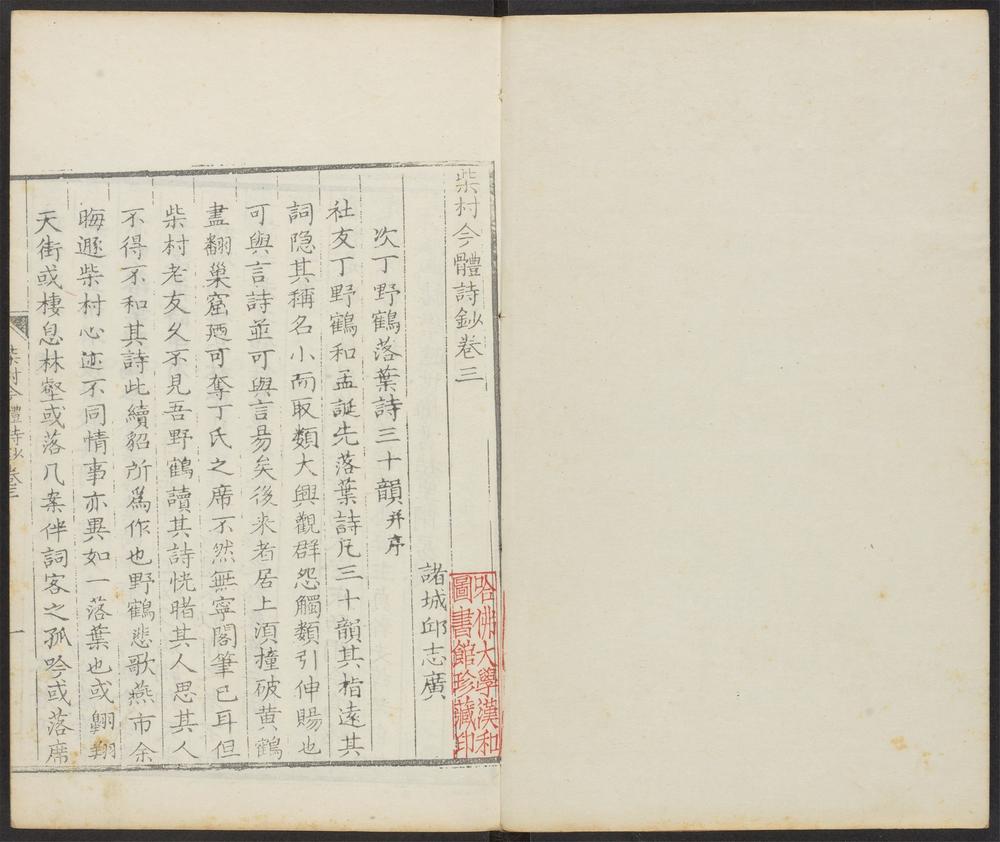 柴村今體詩鈔卷三
諸城邱志廣
次丁野鶴落葉詩三十韻并序
社友丁野鶴和孟誕先落葉詩凡三十韻其指遠其
詞隐其稱名小而取類大興觀群怨觸類引伸賜也
可與言詩並可與言易矣後来者居上湏撞破黄鶴
盡翻巢窟廼可奪丁氏之席不然無寧閣筆已耳但
柴村老友久不見吾野鶴讀其詩恍睹其人思其人
不得不和其詩此續貂所爲作也野鶴悲歌燕市余
晦遯柴村心迹不同情事亦異如一落葉也或翱翔
天街或棲息林壑或落几案伴詞客之孤吟或落席
柴村今體詩鈔卷三
一
哈佛大學漢和
圖書館珍藏印